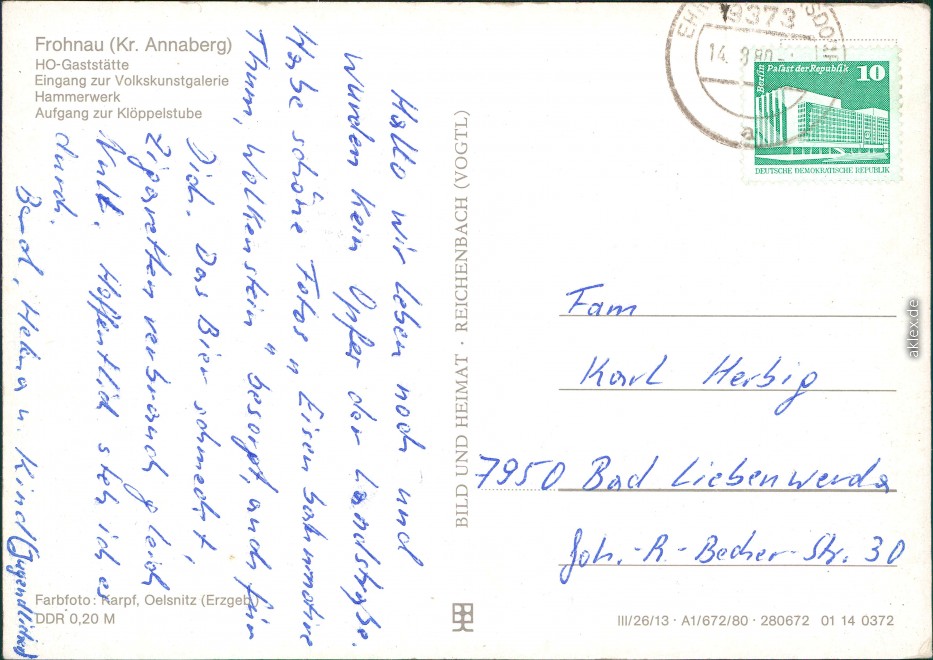 Frohnau (Kr. Annaberg)
HO-Gaststätte
Eingang zur Volkskunstgalerie
Hammerwerk
Aufgang zur Klöppelstube
Hallo wir leben noch und
wurden kein Opfer der Landstraße.
Habe schöne Fotos "Eisenbahnmotive
Thum, Wolkenstein" besorgt, auch für
Dich. Das Bier schmeckt,
Zigarettenverbrauch gleich
Null. Hoffentlich steh ich es
durch.
Bernd, Helina u. Kind (Jugendlicher)
Farbfoto: Karpf, Oelsnitz (Erzgeb.)
DDR 0,20 M
BILD UND HEIMAT · REICHENBACH (VOGTL)
9373
14. 8 80
a
Berlin Palast der Republik 10
DEUTSCHE DEMOKRATISCHE REPUBLIK
Fam
Karl Herbig
7950 Bad Liebenwerda
Joh.-R-Becher-Str. 30
III/26/13 · A1/672/80 · 280672 01 14 0372
aklex.de